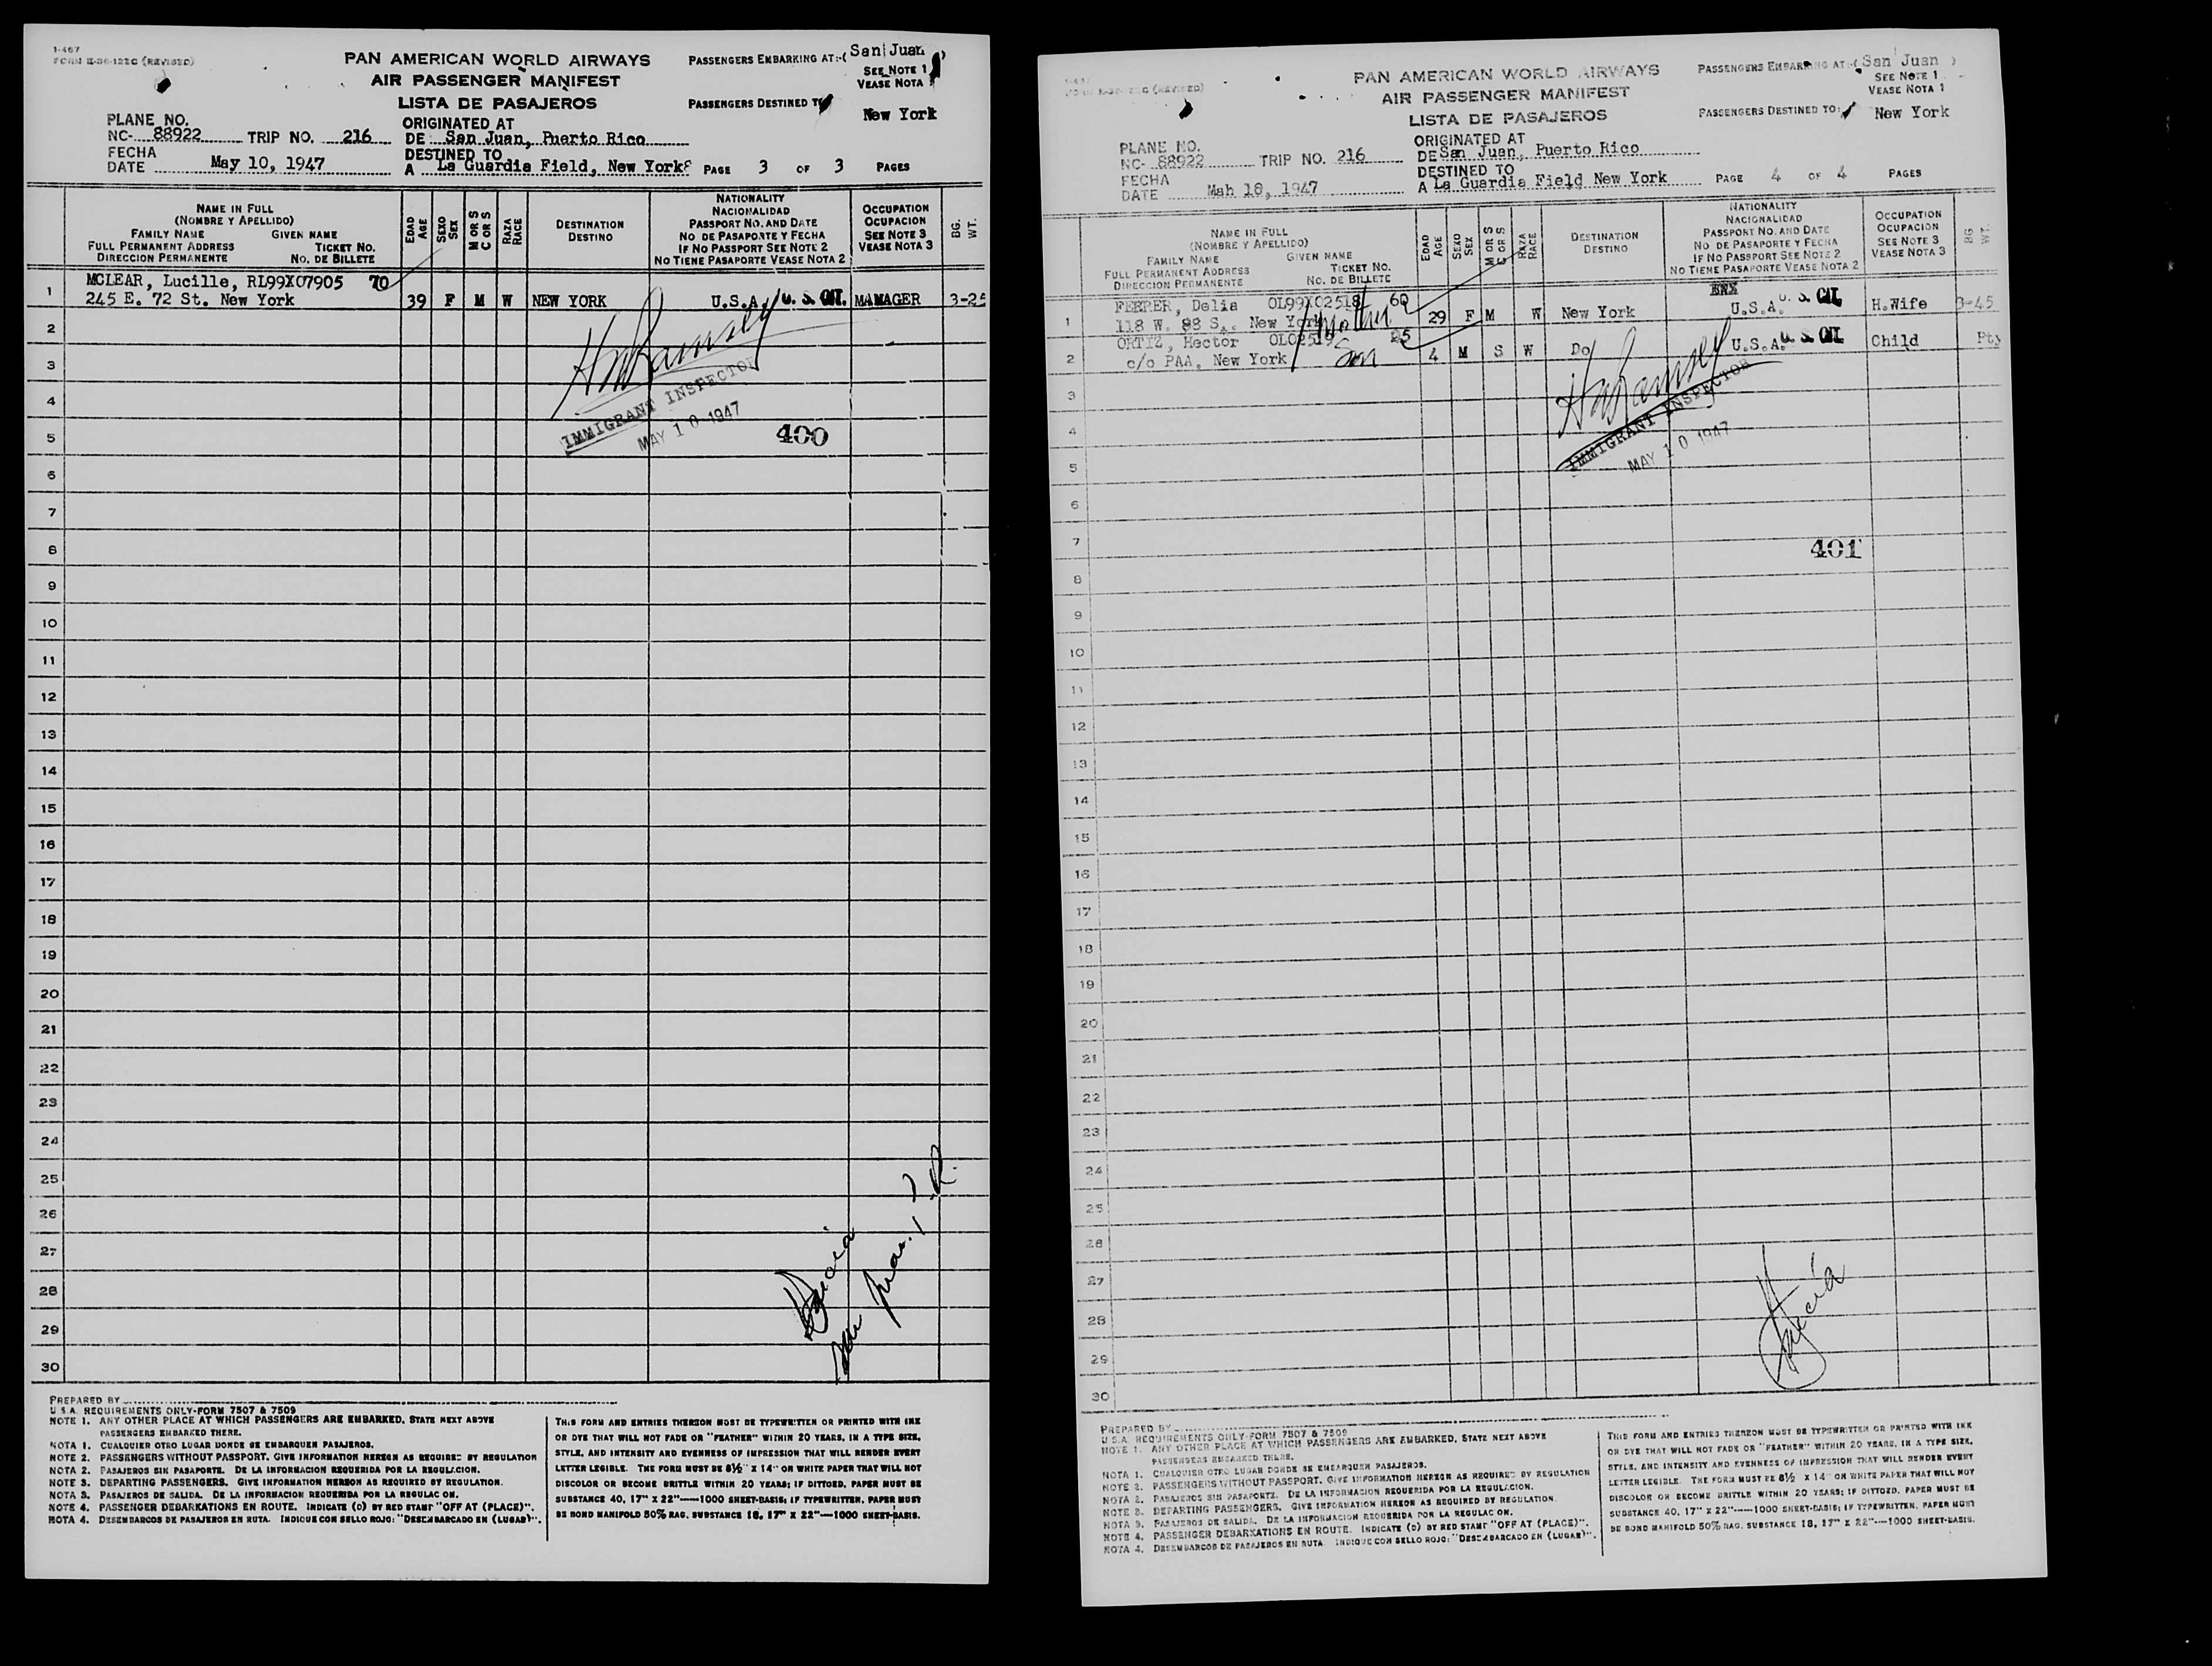 1-467
FORM E-36-122C (REVISED)
PAN AMERICAN WORLD AIRWAYS
AIR PASSENGER MANIFEST
LISTA DE PASAJEROS
PASSENGERS EMBARKING AT:-( San Juan )
SEE NOTE 1
VEASE NOTA 1
PASSENGERS DESTINED TO
New York
PLANE NO.
NC- 88922 TRIP NO. 216
ORIGINATED AT
DE San Juan, Puerto Rico
FECHA
DATE May 10, 1947
DESTINED TO
A La Guardia Field, New York
PAGE 3 OF 3 PAGES
NAME IN FULL
(NOMBRE Y APELLIDO)
FAMILY NAME GIVEN NAME
FULL PERMANENT ADDRESS TICKET NO.
DIRECCION PERMANENTE NO. DE BILLETE
EDAD AGE
SEXO SEX
M OR S C OR S
RAZA RACE
DESTINATION
DESTINO
NATIONALITY
NACIONALIDAD
PASSPORT NO. AND DATE
NO DE PASAPORTE Y FECHA
IF NO PASSPORT SEE NOTE 2
NO TIENE PASAPORTE VEASE NOTA 2
OCCUPATION
OCUPACION
SEE NOTE 3
VEASE NOTA 3
BG. WT.
1 MCLEAR, Lucille, RL99X07905 70
245 E. 72 St. New York 39 F M W NEW YORK U.S.A. U. S. CIT. MANAGER 3-25
2
3
4
IMMIGRANT INSPECTOR
MAY 10 1947
5 400
6
7
8
9
10
11
12
13
14
15
16
17
18
19
20
21
22
23
24
25
26
27
28
29
30
PREPARED BY
U S A. REQUIREMENTS ONLY-FORM 7507 & 7509
NOTE 1. ANY OTHER PLACE AT WHICH PASSENGERS ARE EMBARKED, STATE NEXT ABOVE
PASSENGERS EMBARKED THERE.
NOTA 1. CUALQUIER OTRO LUGAR DONDE SE EMBARQUEN PASAJEROS.
NOTE 2. PASSENGERS WITHOUT PASSPORT. GIVE INFORMATION HEREON AS REQUIRED BY REGULATION
NOTA 2. PASAJEROS SIN PASAPORTE. DE LA INFORMACION REQUERIDA POR LA REGULACION.
NOTE 3. DEPARTING PASSENGERS. GIVE INFORMATION HEREON AS REQUIRED BY REGULATION.
NOTA 3. PASAJEROS DE SALIDA. DE LA INFORMACION REQUERIDA POR LA REGULAC ON.
NOTE 4. PASSENGER DEBARKATIONS EN ROUTE. INDICATE (D) BY RED STAMP "OFF AT (PLACE)".
NOTA 4. DESEMBARCOS DE PASAJEROS EN RUTA. INDIQUE CON SELLO ROJO: "DESEMBARCADO EN (LUGAR)".
THIS FORM AND ENTRIES THEREON MUST BE TYPEWRITTEN OR PRINTED WITH INK
OR DYE THAT WILL NOT FADE OR "FEATHER" WITHIN 20 YEARS, IN A TYPE SIZE,
STYLE, AND INTENSITY AND EVENNESS OF IMPRESSION THAT WILL RENDER EVERY
LETTER LEGIBLE. THE FORM MUST BE 8½" X 14" ON WHITE PAPER THAT WILL NOT
DISCOLOR OR BECOME BRITTLE WITHIN 20 YEARS; IF DITTOED, PAPER MUST BE
SUBSTANCE 40, 17" X 22"----1000 SHEET-BASIS; IF TYPEWRITTEN, PAPER MUST
BE BOND MANIFOLD 50% RAG, SUBSTANCE 18, 17" X 22"---1000 SHEET-BASIS.
PAN AMERICAN WORLD AIRWAYS
AIR PASSENGER MANIFEST
LISTA DE PASAJEROS
PASSENGERS EMBARKING AT:-( San Juan )
SEE NOTE 1
VEASE NOTA 1
PASSENGERS DESTINED TO:
New York
PLANE NO.
NC- 88922 TRIP NO. 216
ORIGINATED AT
DE San Juan, Puerto Rico
FECHA
DATE Mah 18, 1947
DESTINED TO
A La Guardia Field New York
PAGE 4 OF 4 PAGES
NAME IN FULL
(NOMBRE Y APELLIDO)
FAMILY NAME GIVEN NAME
FULL PERMANENT ADDRESS TICKET NO.
DIRECCION PERMANENTE NO. DE BILLETE
EDAD AGE
SEXO SEX
M OR S C OR S
RAZA RACE
DESTINATION
DESTINO
NATIONALITY
NACIONALIDAD
PASSPORT NO. AND DATE
NO DE PASAPORTE Y FECHA
IF NO PASSPORT SEE NOTE 2
NO TIENE PASAPORTE VEASE NOTA 2
OCCUPATION
OCUPACION
SEE NOTE 3
VEASE NOTA 3
BG WT.
1 FERRER, Delia OL99X02518 60
118 W. 88 S. New York Mother 29 F M W New York U.S.A. U. S. CIT. H.Wife 3-45
2 ORTIZ, Hector OL02519 25
c/o PAA, New York Son 4 M S W Do U.S.A. U. S. CIT. Child Pty
3
4
IMMIGRANT INSPECTOR
MAY 10 1947
5
6
7 401
8
9
10
11
12
13
14
15
16
17
18
19
20
21
22
23
24
25
26
27
28
29
30
PREPARED BY
U S A. REQUIREMENTS ONLY-FORM 7507 & 7509
NOTE 1. ANY OTHER PLACE AT WHICH PASSENGERS ARE EMBARKED, STATE NEXT ABOVE
PASSENGERS EMBARKED THERE.
NOTA 1. CUALQUIER OTRO LUGAR DONDE SE EMBARQUEN PASAJEROS.
NOTE 2. PASSENGERS WITHOUT PASSPORT. GIVE INFORMATION HEREON AS REQUIRED BY REGULATION
NOTA 2. PASAJEROS SIN PASAPORTE. DE LA INFORMACION REQUERIDA POR LA REGULACION.
NOTE 3. DEPARTING PASSENGERS. GIVE INFORMATION HEREON AS REQUIRED BY REGULATION.
NOTA 3. PASAJEROS DE SALIDA. DE LA INFORMACION REQUERIDA POR LA REGULAC ON.
NOTE 4. PASSENGER DEBARKATIONS EN ROUTE. INDICATE (D) BY RED STAMP "OFF AT (PLACE)".
NOTA 4. DESEMBARCOS DE PASAJEROS EN RUTA. INDIQUE CON SELLO ROJO: "DESEMBARCADO EN (LUGAR)".
THIS FORM AND ENTRIES THEREON MUST BE TYPEWRITTEN OR PRINTED WITH INK
OR DYE THAT WILL NOT FADE OR "FEATHER" WITHIN 20 YEARS, IN A TYPE SIZE,
STYLE, AND INTENSITY AND EVENNESS OF IMPRESSION THAT WILL RENDER EVERY
LETTER LEGIBLE. THE FORM MUST BE 8½ X 14" ON WHITE PAPER THAT WILL NOT
DISCOLOR OR BECOME BRITTLE WITHIN 20 YEARS; IF DITTOED, PAPER MUST BE
SUBSTANCE 40, 17" X 22"----1000 SHEET-BASIS; IF TYPEWRITTEN, PAPER MUST
BE BOND MANIFOLD 50% RAG, SUBSTANCE 18, 17" X 22"---1000 SHEET-BASIS.